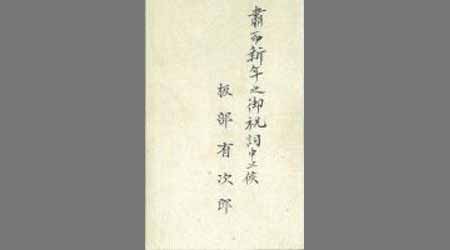 肅而新年之御祝詞申上候
板部有次郎